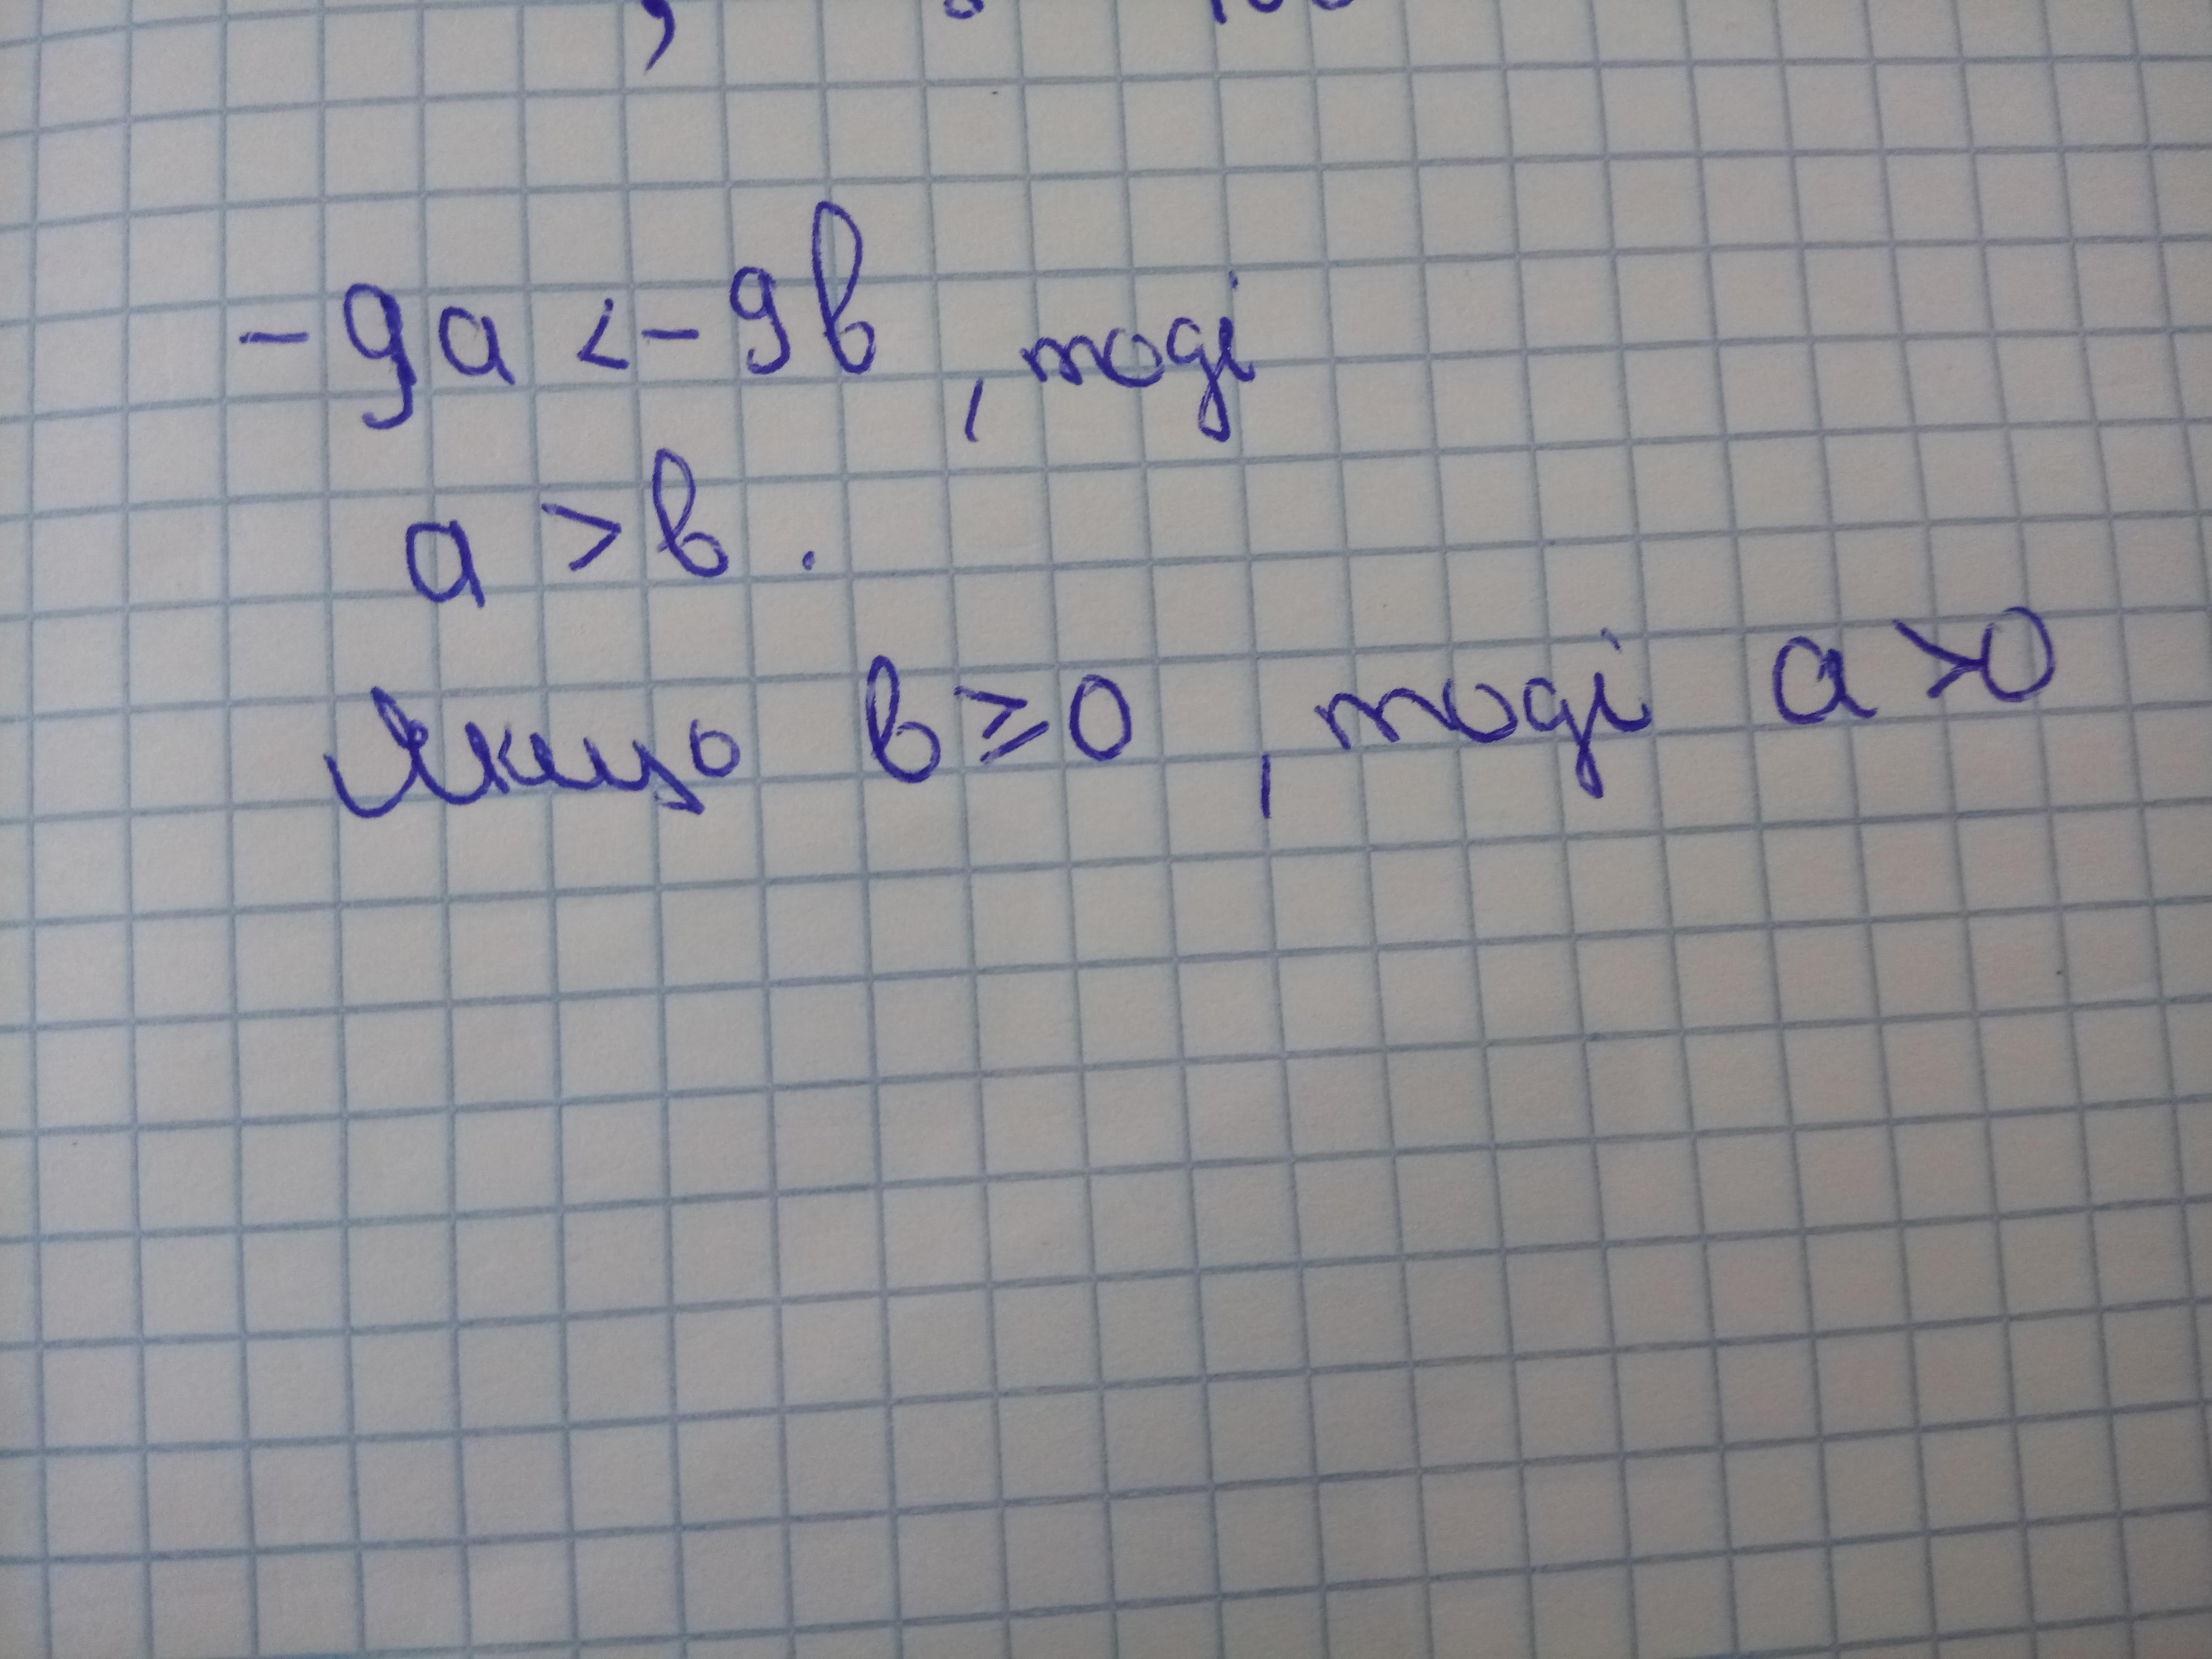 -9a < -9b, тоді
a > b.
Якщо b ≥ 0, тоді a > 0